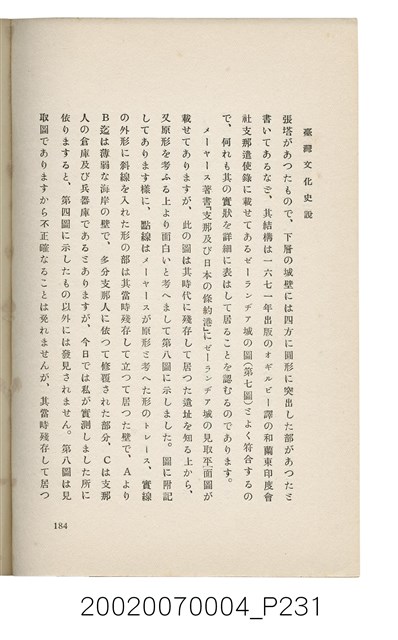 臺灣文化史說
張塔があつたもので、下層の城壁には四方に圓形に突出した部があつたと
書いてあるなど、其結構は一六七一年出版のオギルビー譯の和蘭東印度會
社支那遣使錄に載せてあるゼーランヂア城の圖(第七圖)とよく符合するの
で、何れも其の實狀を詳細に表はして居ることを認むるのであります。
メーヤース著書「支那及び日本の條約港」にゼーランヂア城の見取平面圖が
載せてありますが、此の圖は其時代に殘存して居つた遺址を知る上から、
又原形を考ふる上より面白いと考へまして第八圖に示しました。圖に附記
してあります樣に、點線はメーヤースが原形と考へた形のトレース、實線
の外形に斜線を入れた形の部は其當時殘存して立つて居つた壁で、Aより
B迄は薄弱な海岸の壁で、多分支那人に依つて修覆された部分、Cは支那
人の倉庫及び兵器庫であるとありますが、今日では私が實測しました所に
依りますると、第四圖に示したもの以外には發見されません。第八圖は見
取圖でありますから不正確なることは免れませんが、其當時殘存して居つ
184
20020070004_P231